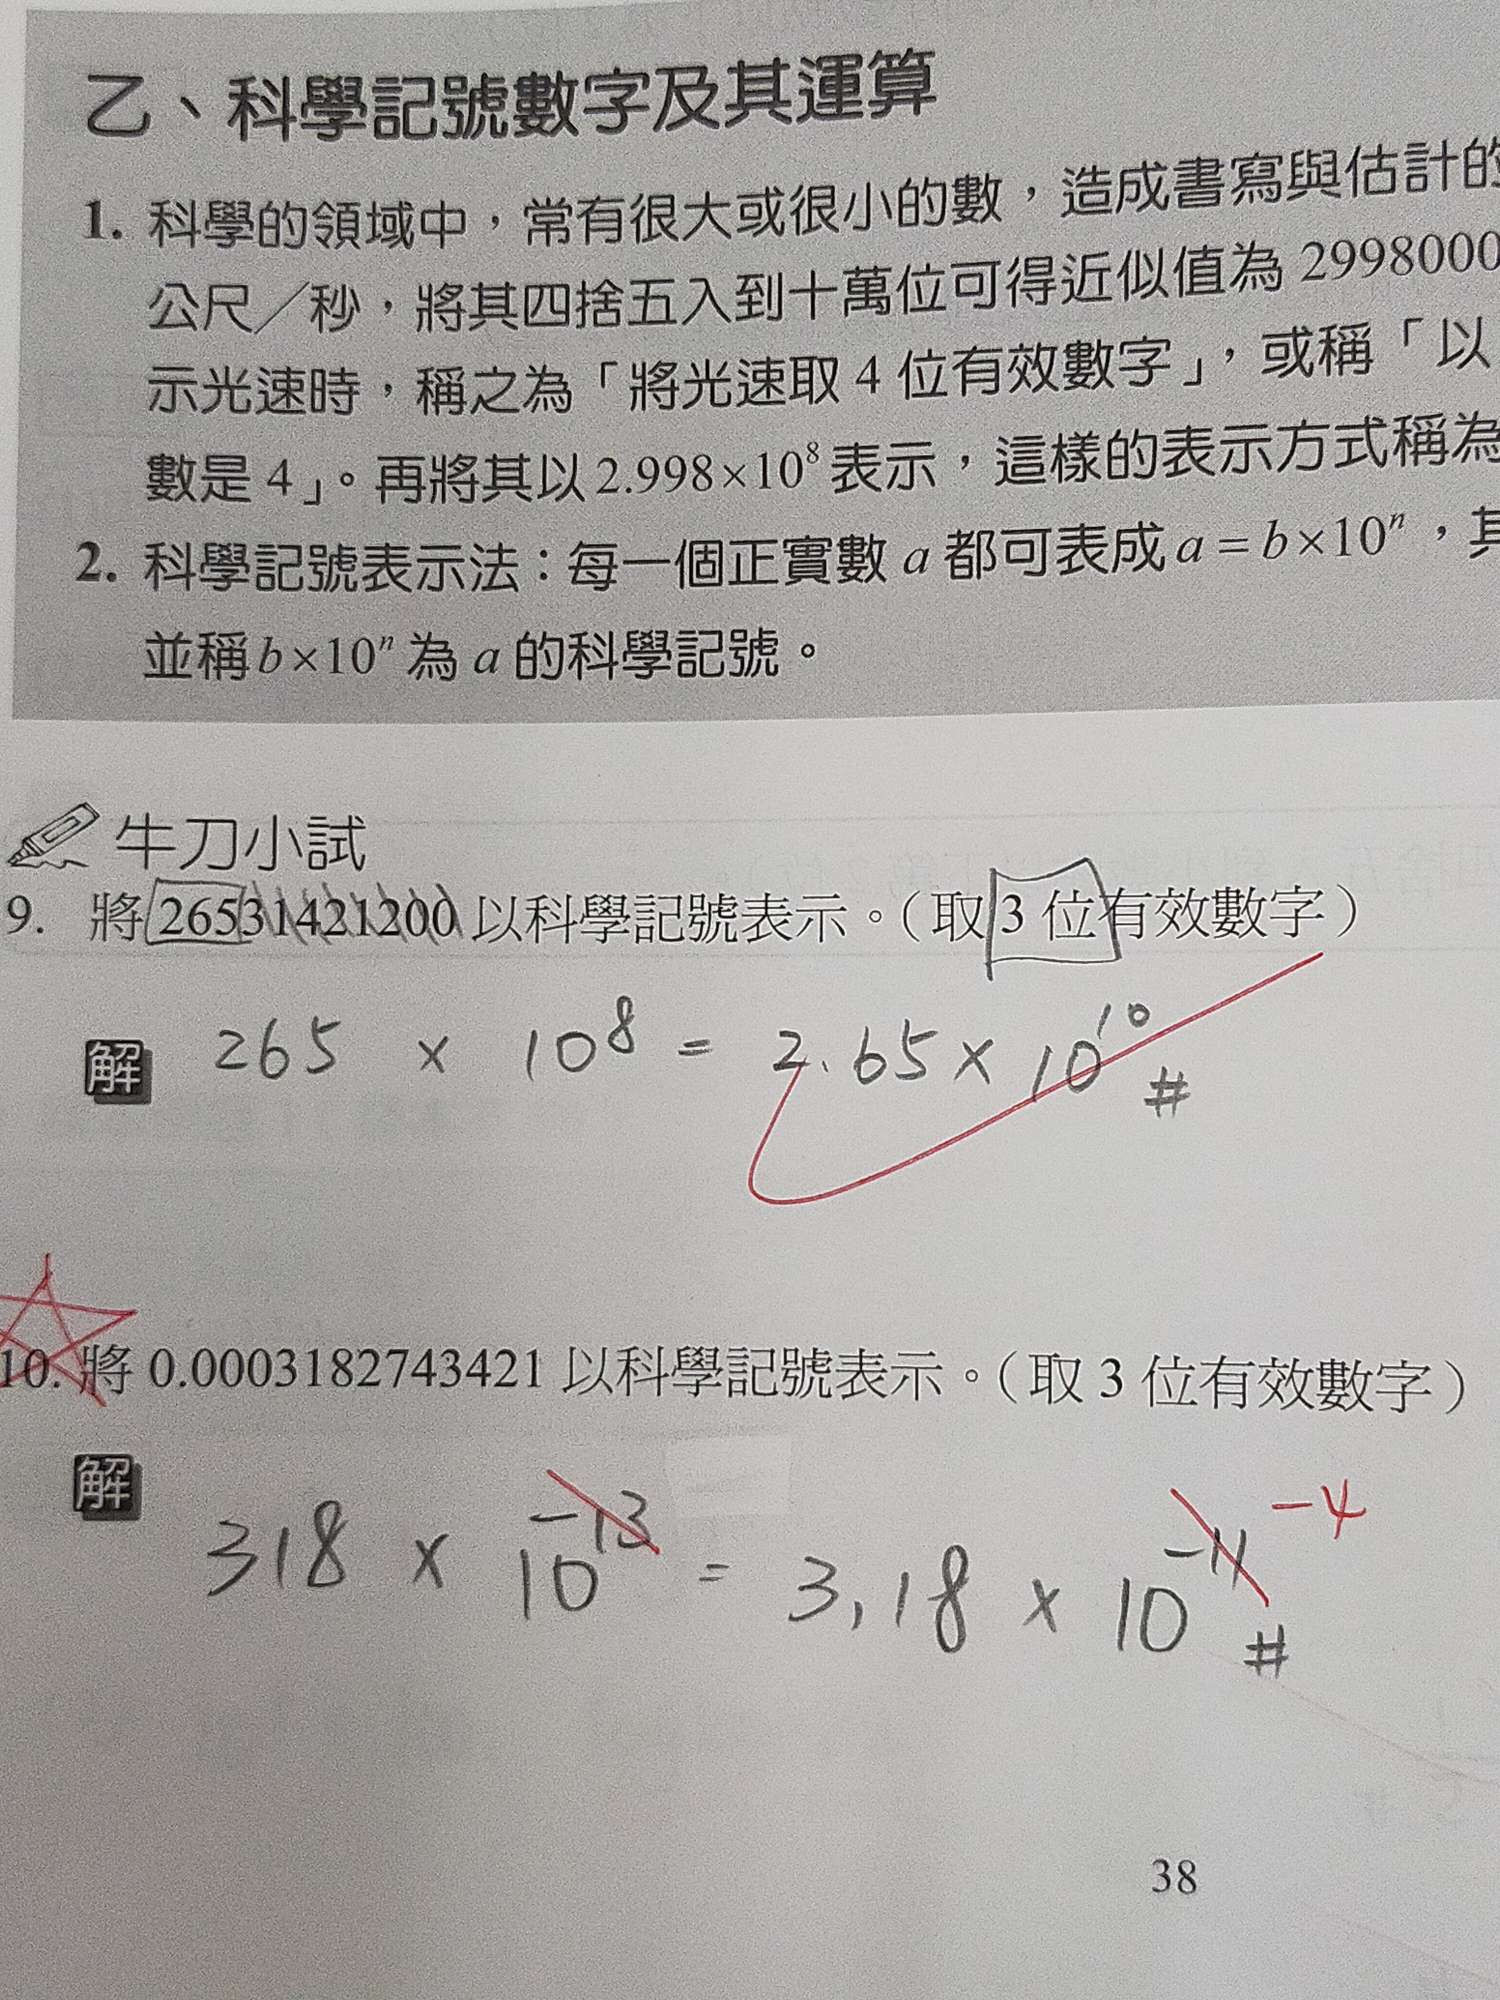 乙、科學記號數字及其運算
1. 科學的領域中，常有很大或很小的數，造成書寫與估計的
公尺／秒，將其四捨五入到十萬位可得近似值為 2998000
示光速時，稱之為「將光速取 4 位有效數字」，或稱「以
數是 4」。再將其以 2.998×10⁸ 表示，這樣的表示方式稱為
2. 科學記號表示法：每一個正實數 a 都可表成 a = b×10ⁿ，其
並稱 b×10ⁿ 為 a 的科學記號。
牛刀小試
9. 將 26531421200 以科學記號表示。（取 3 位有效數字）
解 265 × 10⁸ = 2.65 × 10¹⁰ #
10. 將 0.0003182743421 以科學記號表示。（取 3 位有效數字）
解 318 × 10⁻¹³ = 3.18 × 10⁻¹¹ -4 #
38